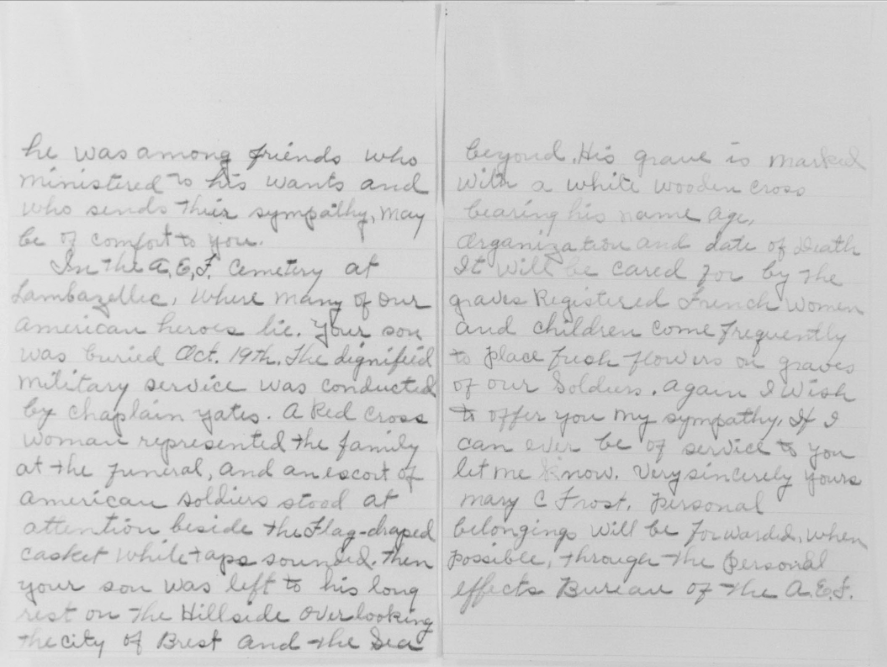 he was among friends who
ministered to his wants and
who sends their sympathy, may
be of comfort to you.
In the A.E.F. Cemetery at
Lambazellec, where many of our
american heroes lie. Your son
was buried Oct. 19th. The dignified
military service was conducted
by chaplain yates. A Red Cross
woman represented the family
at the funeral, and an escort of
american soldiers stood at
attention beside the Flag-draped
casket while taps sounded. Then
your son was left to his long
rest on the Hillside overlooking
the city of Brest and the Sea
beyond. His grave is marked
with a white wooden cross
bearing his name age,
organization and date of Death
It will be cared for by the
graves Registered French women
and children come frequently
to place fresh flowers on graves
of our Soldiers. Again I wish
to offer you my sympathy. If I
can ever be of service to you
let me know. Very sincerely yours
Mary C Frost. Personal
belongings will be forwarded, when
possible, through the personal
effects Bureau of the A.E.F.